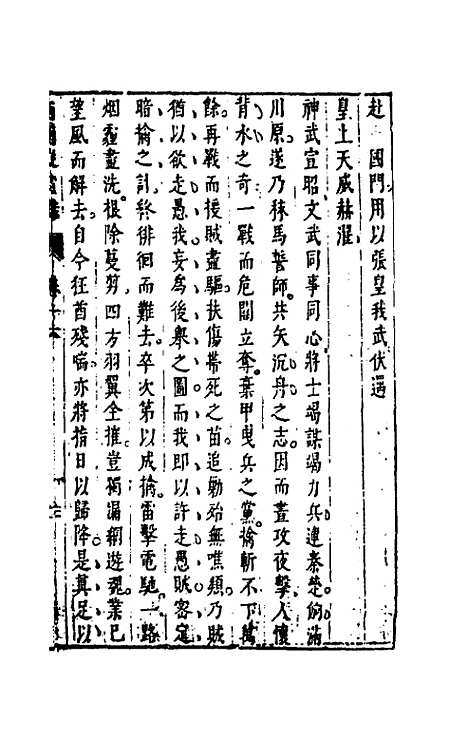 赴 國門用以張皇我武伏遇
皇上天威赫濯
神武宣昭文武同事同心將士竭謀竭力兵連秦楚餉滿
川原遂乃秣馬誓師共矢沉舟之志因而晝攻夜擊人懷
背水之奇一戰而危關立奪棄甲曳兵之黨擒斬不下萬
餘再戰而援賊盡驅扶傷帶死之苗追勦殆無噍類乃賊
猶以欲走愚我妄為後舉之圖而我即以許走愚賊密定
暗擒之計終徘徊而難去卒次第以成擒雷擊電馳一路
烟塵盡洗根除蔓剪四方羽翼全摧豈獨漏網遊魂業已
望風而解去自今狂酋殘喘亦將指日以歸降是真足以